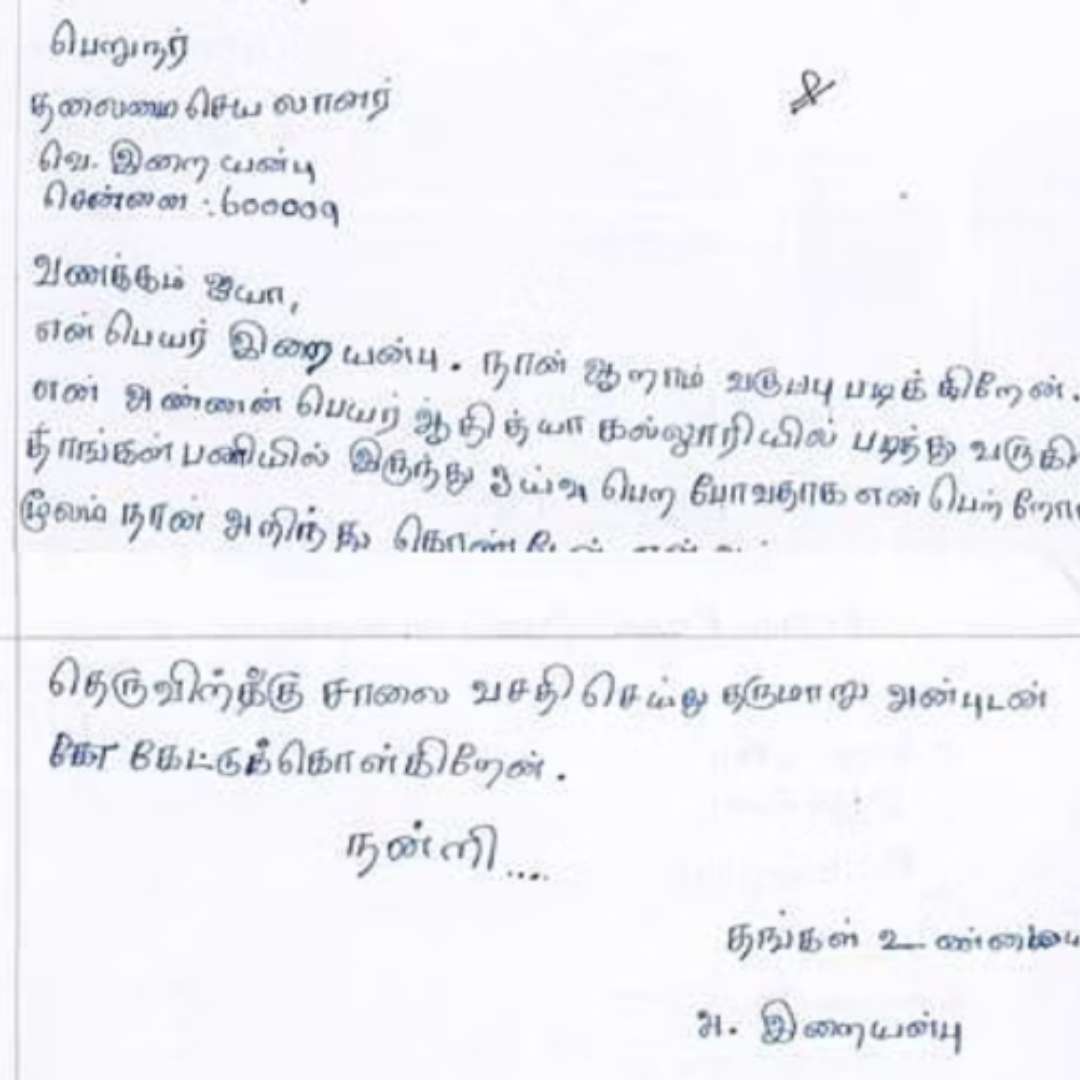 பெறுநர்
தலைமை செயலாளர்
வெ. இறையன்பு
சென்னை : 600009
வணக்கம் ஐயா,
என் பெயர் இறையன்பு. நான் ஆறாம் வகுப்பு படிக்கிறேன்.
என் அண்ணன் பெயர் ஆதித்யா கல்லூரியில் படித்து வருகி
தாங்கள் பணியில் இருந்து ஓய்வு பெற போவதாக என் பெற்றோ
மூலம் நான் அறிந்து
தெருவிற்கு சாலை வசதி செய்து தருமாறு அன்புடன்
கேட்டுக்கொள்கிறேன்.
நன்றி....
தங்கள் உண்மைய
அ. இறையன்பு